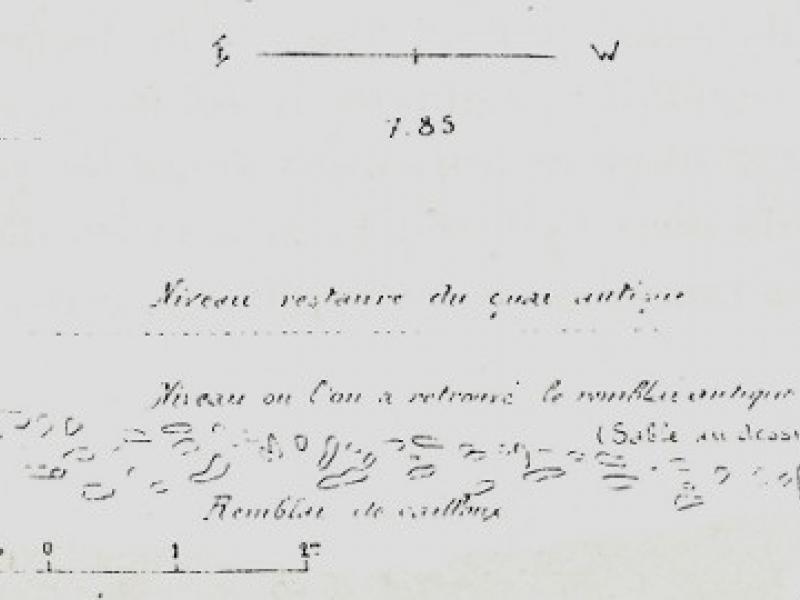 E W
7.85
Niveau restauré du quai antique
Niveau ou l'on a retrouvé le remblai antique
(Sable au dessu
Remblai de cailloux
0 1 2m